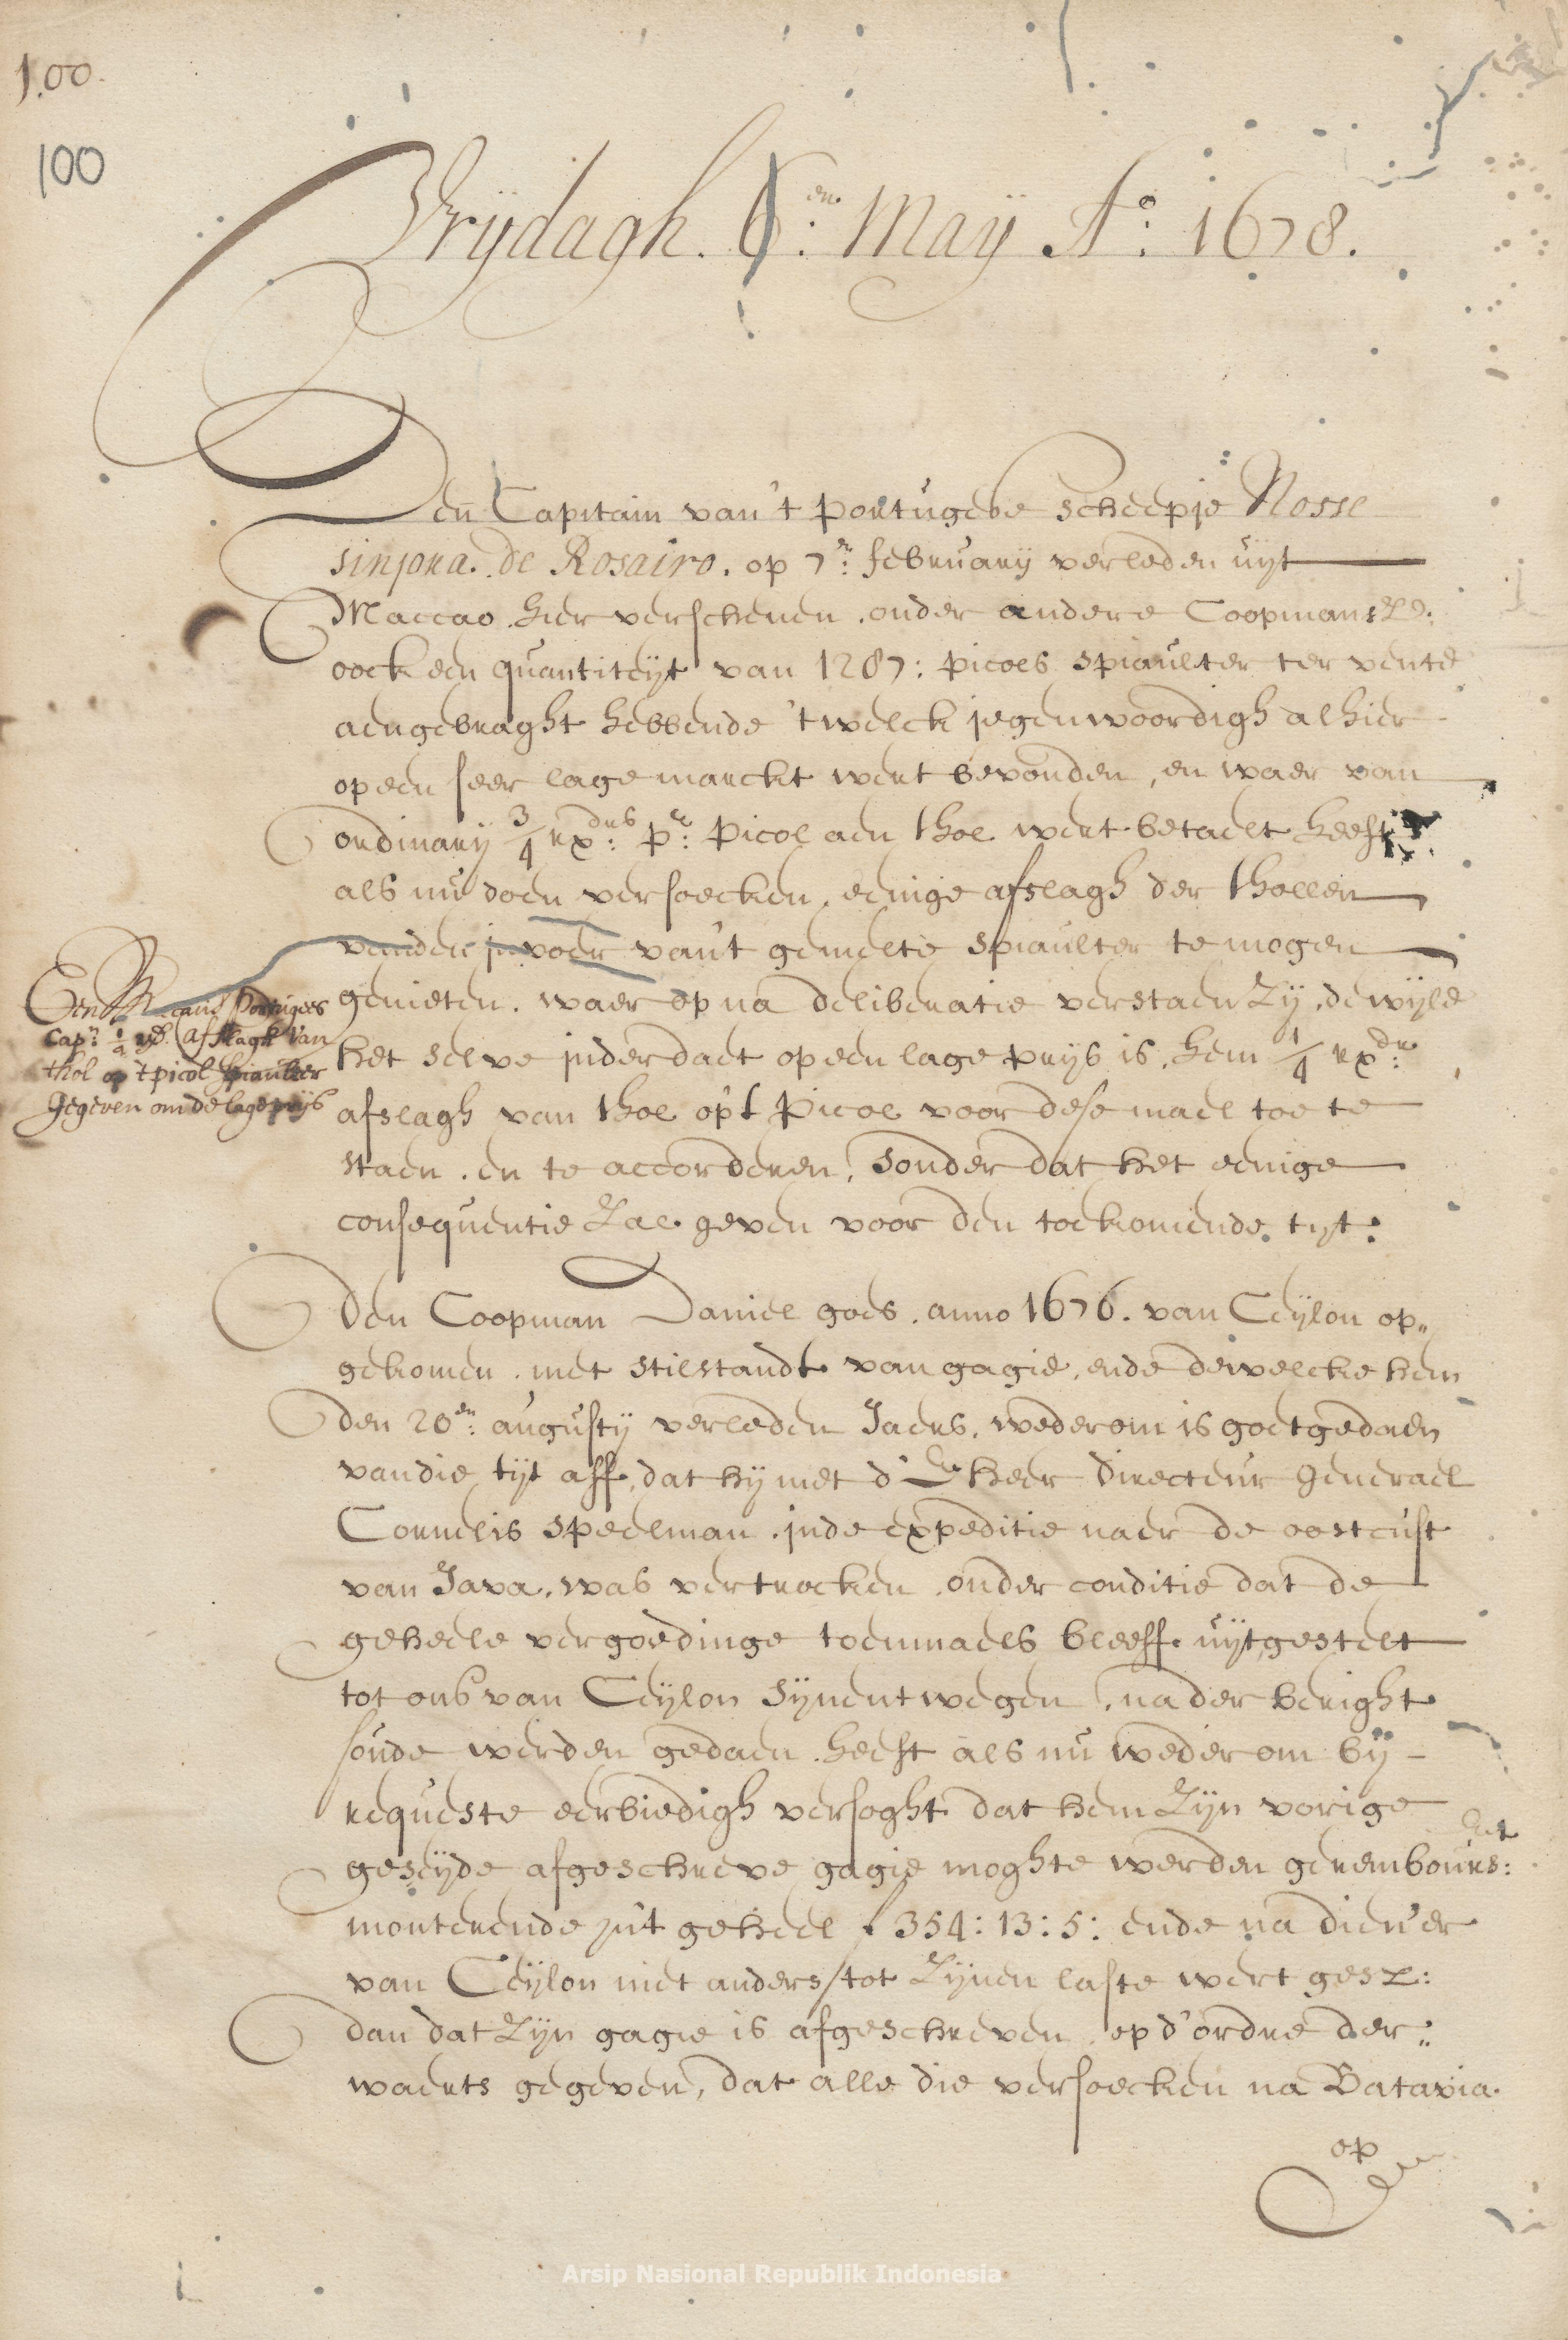 100.
100
Vrijdagh. 6en: Maij Ao: 1678.
Den Capitain van't portugese scheepje Nosse
sinjora. de Rosairo. op 7en: february verleden uijt
Maccao. hier verschenen. onder andere Coopmansz:
oock een quantiteijt van 1287: picols spiaulter ter vente
aengebraght hebbende 't welck jegenwoordigh alhier
op een seer lage marckt wert bevonden, en waer van
ordinarij 3/4 rxdrs: pr: picol aen thol wert betaelt heeft
als nu doen versoecken, eenige afslagh der thollen
van den invoer van't gemelte spiaulter te mogen
genieten. waer op na deliberatie verstaen zij, dewijle
het selve inderdaet op een lage prijs is, hem 1/4 rxdr:
afslagh van thol op't picol voor dese mael toe te
staen. en te accorderen, sonder dat het eenige
consequentie zal geven voor den toekomende tijt.
Een Portugees
Capn: 1/4 rd. afslagh van
thol op 't picol spiaulter
gegeven om de lage prijs
Den Coopman Daniel goes. anno 1676. van Ceijlon op„
gekomen. met stilstandt van gagie, ende dewelcke hem
den 20en: augustij verleden Jaers, wederom is goetgedaen
van die tijt aff, dat hij met d' Ed Heer directeur generael
Cornelis speelman. inde expeditie naer de oostcust
van Java, was vertrocken. onder conditie dat de
geheele vergoedinge toenmaels bleeff uijtgestelt
tot ons van Ceijlon sijnentwegen, nader beright
soude werden gedaen. heeft als nu wederom bij
requeste eerbiedigh versoght dat hem zijn vorige
geseijde afgeschreve gagie moghte werden gerembourst:
monterende in't geheel f 354: 13: 5: ende na dien'er
van Ceijlon niet anders tot zijnen laste wert gesz:
dan dat zijn gagie is afgeschreven. op d'ordre der„
waerts gegeven, dat alle die versoecken na Batavia.
op
Arsip Nasional Republik Indonesia